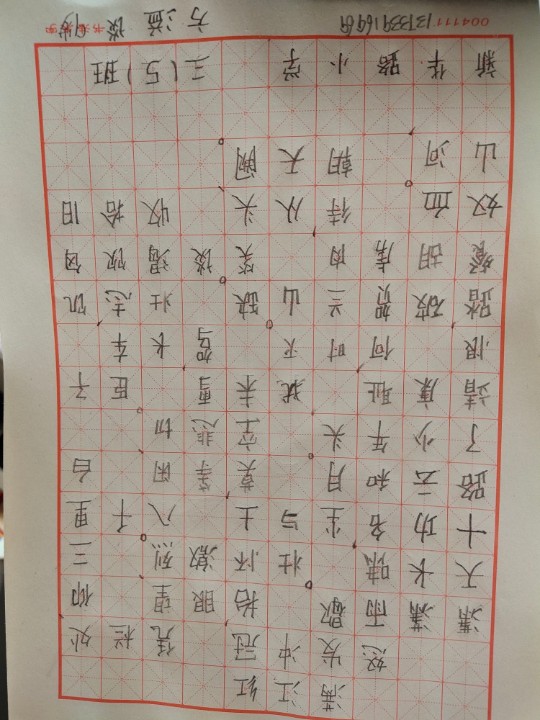 满江红
怒发冲冠 凭栏处,
潇潇雨歇。抬眼望,仰
天长啸,壮怀激烈。三
十功名尘与土,八千里
路云和月。莫等闲 白
了少年头 空悲切。
靖康耻,犹未雪 臣子
恨,何时灭。驾长车,
踏破贺兰山缺。壮志饥
餐胡虏肉,笑谈渴饮匈
奴血。待从头,收拾旧
山河,朝天阙。
新华路小学 三(5)班
004111